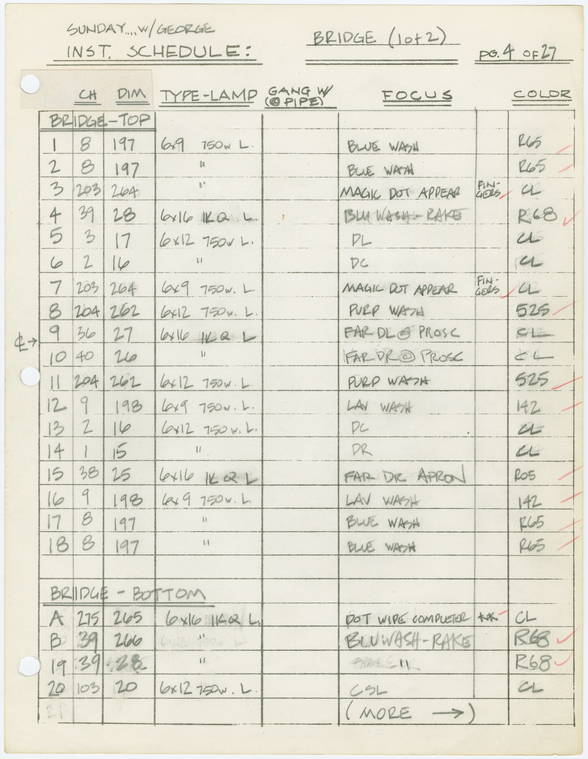 SUNDAY....W/GEORGE
INST. SCHEDULE: BRIDGE (1 of 2) PG. 4 OF 27
CH DIM TYPE-LAMP GANG W/ (@ PIPE) FOCUS COLOR
BRIDGE-TOP
1 8 197 6x9 750w L. BLUE WASH R65
2 8 197 " BLUE WASH R65
3 203 264 " MAGIC DOT APPEAR FIN-GERS CL
4 39 28 6x16 1KQ L BLU WASH-RAKE R68
5 3 17 6x12 750w L. DL CL
6 2 16 " DC CL
7 203 264 6x9 750w. L. MAGIC DOT APPEAR FIN-GERS CL
8 204 262 6x12 750w. L. PURP WASH 525
℄→ 9 36 27 6x16 1KQ L FAR DL @ PROSC CL
10 40 26 " FAR DR @ PROSC CL
11 204 262 6x12 750w. L. PURP WASH 525
12 9 198 6x9 750w. L. LAV WASH 142
13 2 16 6x12 750w. L. DC CL
14 1 15 " DR CL
15 38 25 6x16 1KQ L FAR DR APRON R05
16 9 198 6x9 750w. L. LAV WASH 142
17 8 197 " BLUE WASH R65
18 8 197 " BLUE WASH R65
BRIDGE-BOTTOM
A 275 265 6x16 1KQ L. DOT WIPE COMPLETER ** CL
B 39 266 " BLU WASH-RAKE R68
19 39 28 " " R68
20 103 20 6x12 750w. L. CSL CL
(MORE →)